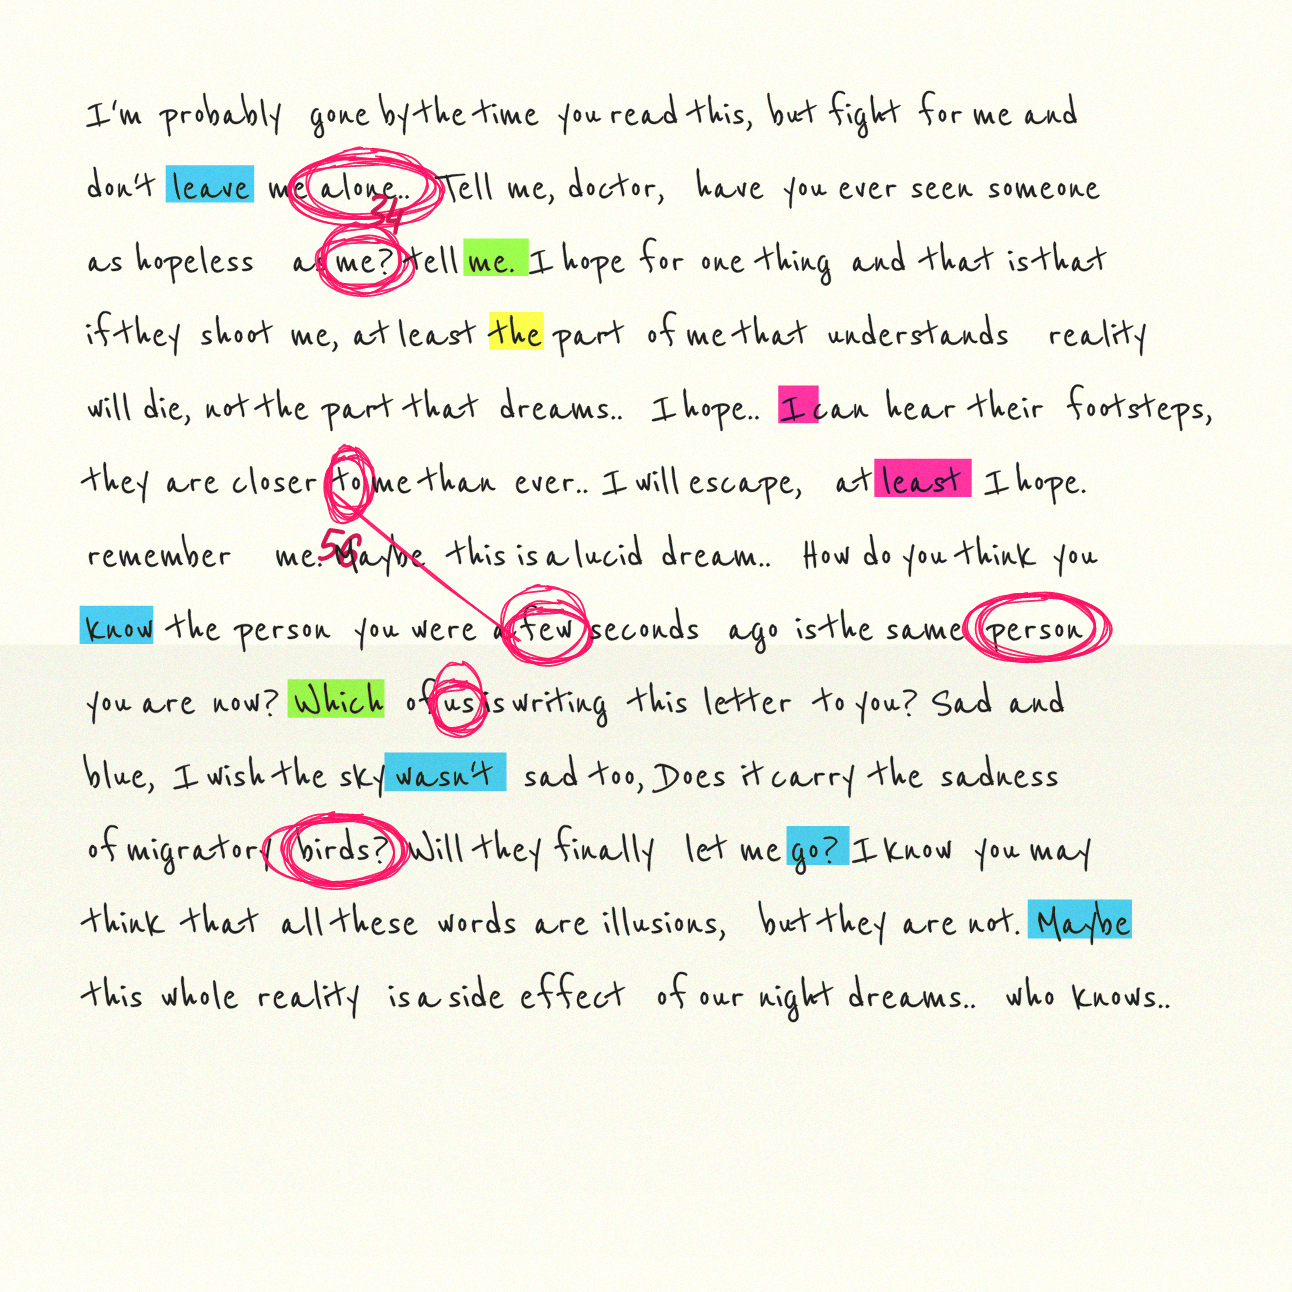 I'm probably gone by the time you read this, but fight for me and
don't leave me alone.. Tell me, doctor, have you ever seen someone
34
as hopeless as me? tell me. I hope for one thing and that is that
if they shoot me, at least the part of me that understands reality
will die, not the part that dreams.. I hope.. I can hear their footsteps,
they are closer to me than ever.. I will escape, at least I hope.
remember me. Maybe this is a lucid dream.. How do you think you
know the person you were a few seconds ago is the same person
you are now? Which of us is writing this letter to you? Sad and
blue, I wish the sky wasn't sad too, Does it carry the sadness
of migratory birds? Will they finally let me go? I know you may
think that all these words are illusions, but they are not. Maybe
this whole reality is a side effect of our night dreams.. who knows..